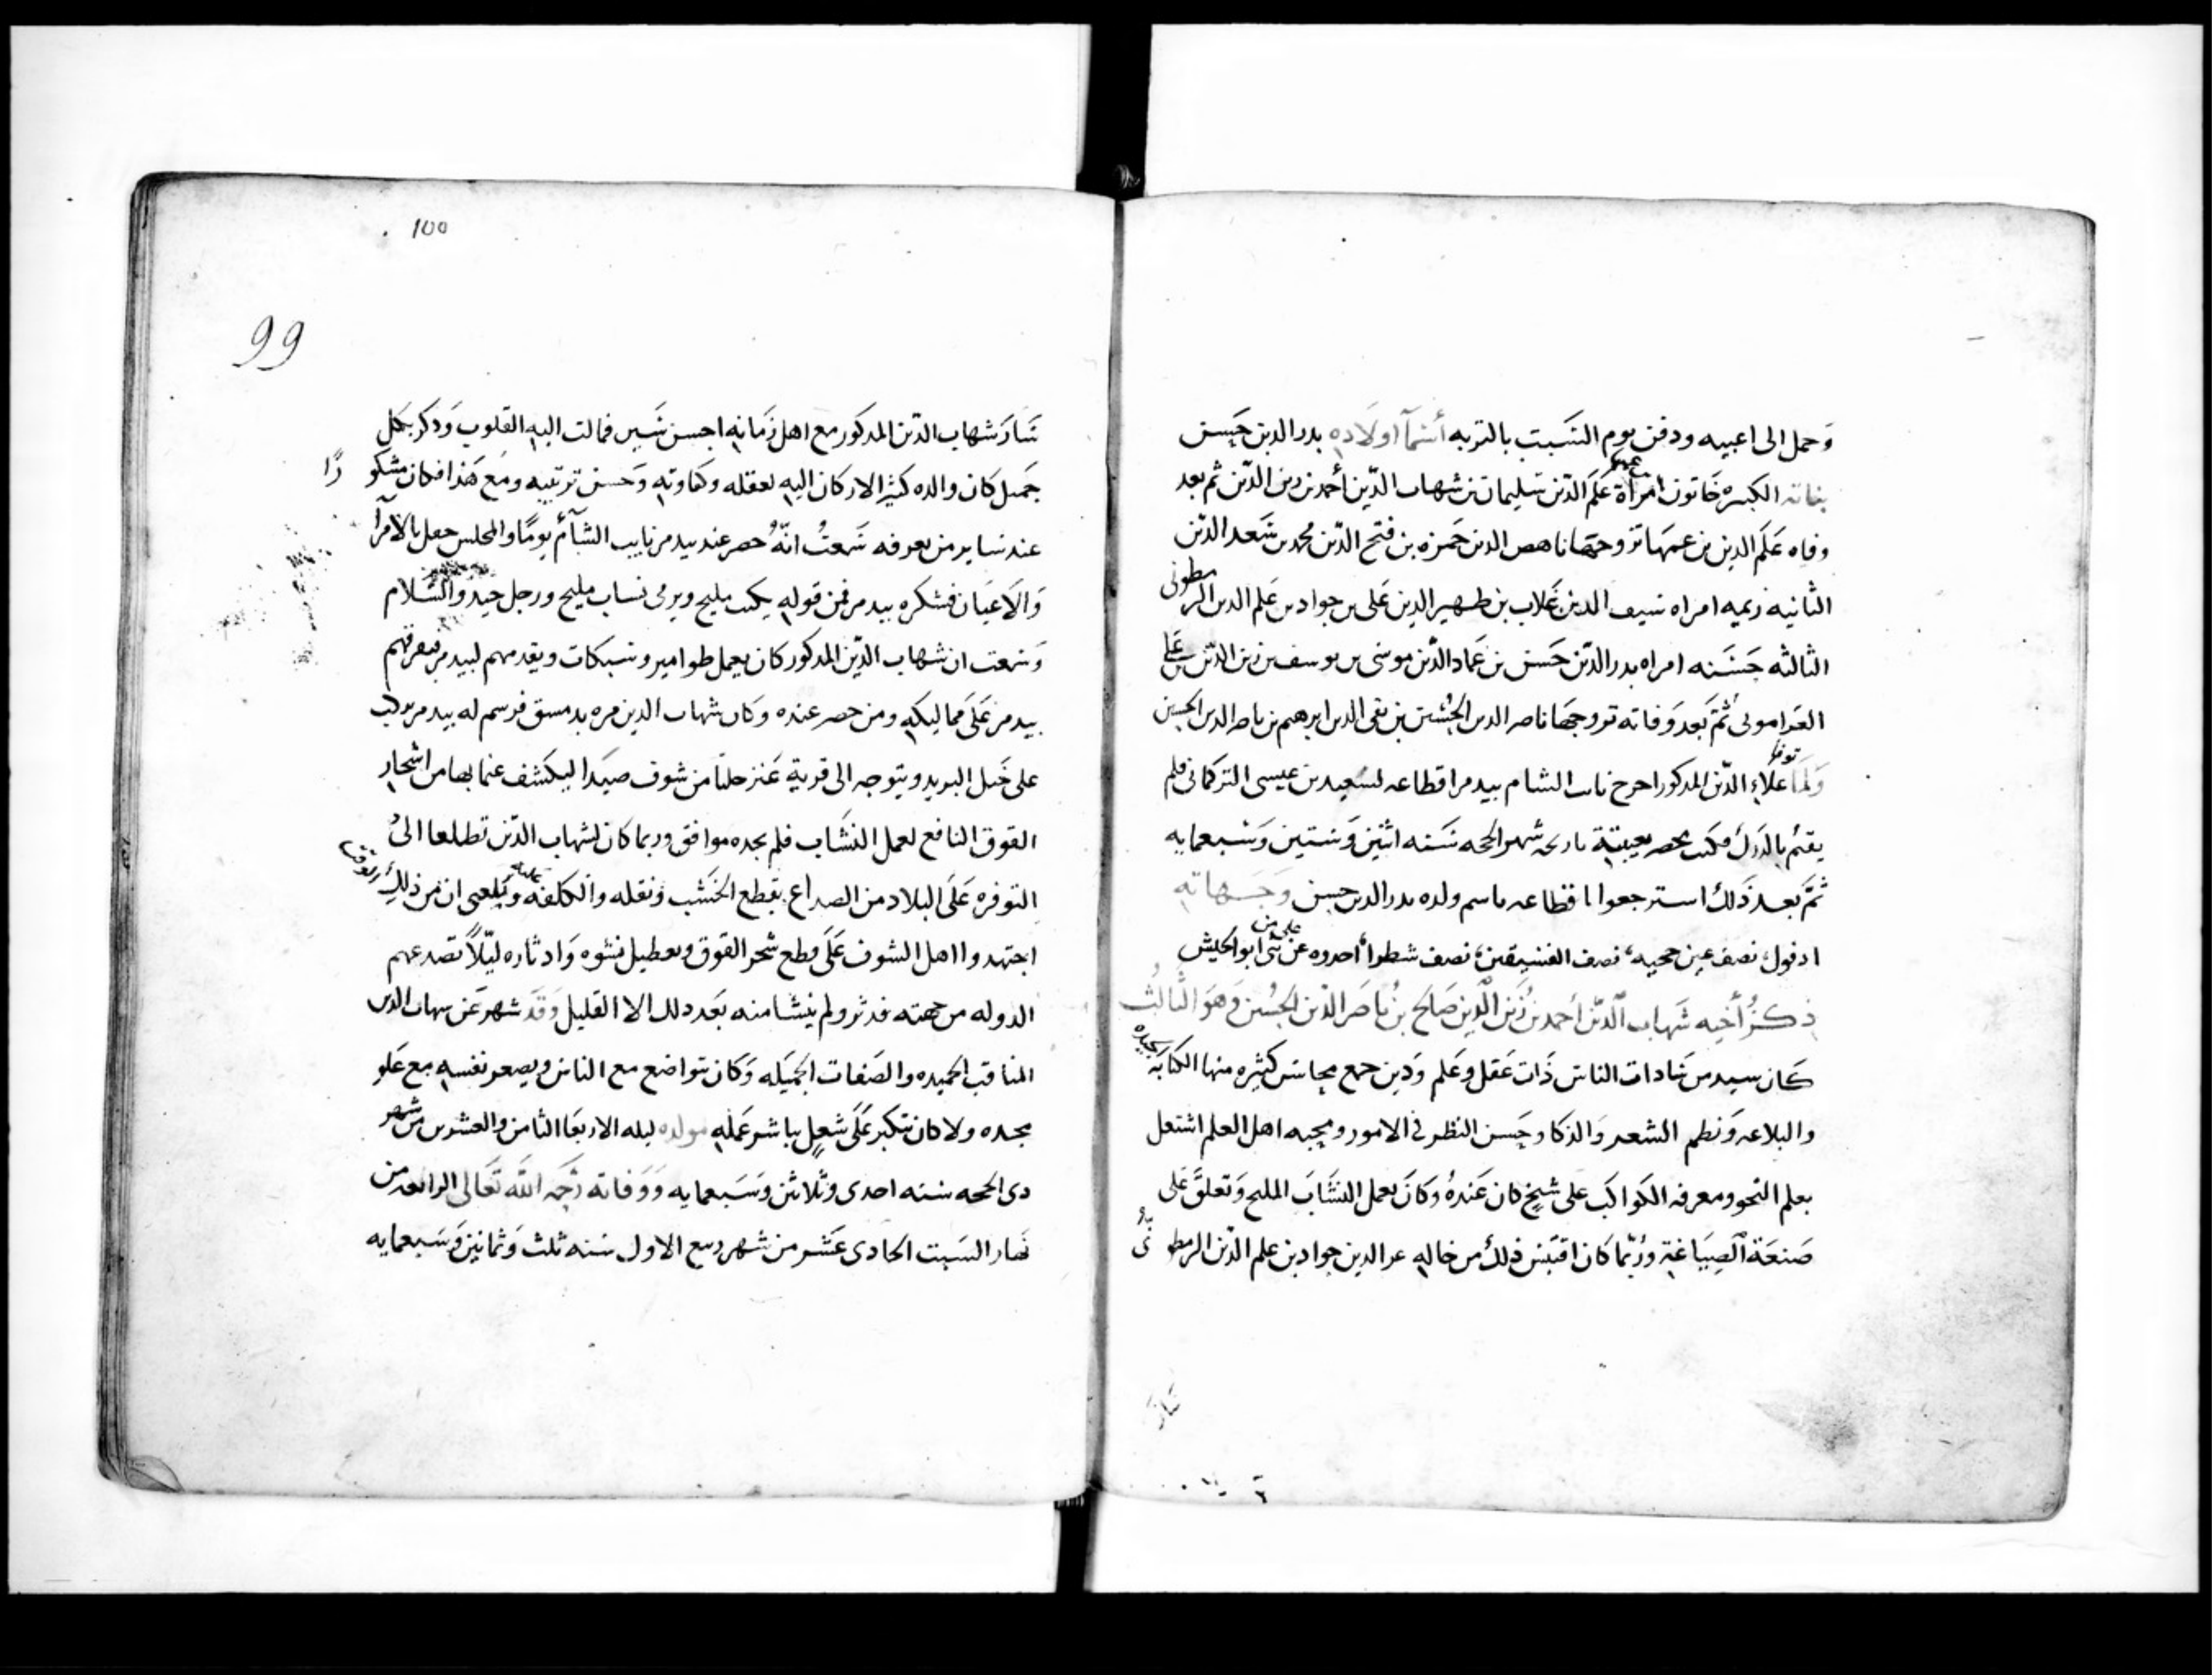 وَحمل الى اعبيه ودفن يوم السَبت بالتربه أسْمآ اولَاده بدر الدين حَسن
بناته الكبيره خَاتون امرأة عَلَم الدّين سُليمان بن شهاب الدّين أحمد بن زين الدّين ثم بعد
عمها
وفاه عَلَم الدين بن عمهَا تزوجهَا ناهض الدين حَمزه بن فتح الدّين محمد بن سَعد الدّين
الثانيه ريمه امراه سيف الدين غَلاب بن ظهير الدين عَلى بن جواد بن عَلم الدين الرمطونى
الثالثه حَسَنه امراه بدر الدّين حَسن بن عمَاد الدّين موسَى بن يوسف بن زين الدّين بن عَلى
العَرامونى ثُمّ بَعد وَفاته تزوجهَا ناصر الدين الحُسَين بن تقى الدين ابرهيم بن ناصر الدين الحسين
وَلمَا توفا علَاءِ الدّين المذكور اخرج نائب الشام بيدمر اقطاعه لسَعِيد بن عيسى التركمانى فلم
يقمُ بالدَرك فكتب محضر بعيبتة تاريخه شهر الحجه سَنه اثنين وَستين وَسَبعمايه
ثمَّ بَعد ذَلكَ استرجعوا اقطاعه باسم ولده بدر الدين حسن وَجَهاته
ادفول، نصف عين حجيه، نصف الفسيقين، نصف شطرا، احدوه عن على من بنى ابو الجيش
ذكرُ أخيه شَهاب الّدين أحمد بن زَين الّدين صَالح بنُ ناصَر الدّين الحُسين وَهوَ الثَّالثُ
كَان سيد من سَادات الناس ذَات عَقل وَعَلم وَدين جمع محاسَن كثيره منها الكتابه الجيده
والبلاغه وَنظم الشعر وَالذكا وحَسن النظر فى الامور ومحبه اهل العلم اشتغل
بعلم النحو ومعرفه الكواكب على شيخ كان عَندهُ وَكانَ يَعمل النشَابَ المليح وَتعلقَّ عَلى
صَنعَة الَصيَاغة وَرُبّما كان اقتبَس ذلكَ من خاله عز الدين جواد بن علم الدّين الرمطونّى
سَارَ
100
99
سَارَ شهاب الدّين المذكور مع اهل زَمانه احسن سَير فمالت اليه القلوب وَذكر بكل
جَميل كان والده كثير الاركان اليه لعقله وكفاوته وَحَسن ترتيبه ومَع هَذا فكان مشكورًا
عند ساير من يعرفه سَمعتُ انّهُ حضر عند بيدمر نايب الشأم يومًا والمجلس حفل بالامرآ
وَالاعيَان فشكره بيدمر فمن قوله يكتب مليح ويرمى نساب مليح ورجل جيد والسَّلام
وَسَمعت ان شهاب الدّين المذكور كان يعمل طوامير وسبكات ويقدمهم لبيدمر فيفرقهم
بيدمر عَلَى مماليكه ومن حضر عنده وَكان شهاب الدين مره بدمسق فرسم له بيدمر يركب
على خَيل البريد ويتوجه الى قرية عَنز حلتا من شوف صيَدا ليكشف عَما بها من اشجار
القوق النافع لعمل النشَاب فلم يجده موافق وربما كان لشهاب الدّين تطلعا الىُ
التوفره عَلَى البلاد من الصداع بقطع الخَشَب ونقله والكلفه عليه وبَلغنى ان من ذلكَ الوقت
اجتهدوا اهل الشوف عَلَى قطع شجر القوق وتعطيل نشوه وَادثاره ليّلًا تصدعهم
الدوله من جهته فدثر ولم ينشا منه بَعد ذلك الا القليل وَقدَ شهر عَن شهاب الدين
المناقب الحميده والصَفات الجَميَله وَكان يتواضع مع الناس ويصغر نفسه مع عَلو
مجده ولا كان يتكبر عَلَى شغلٍ يباشر عَمله مولده ليله الاربعَا الثامن والعشرين من شهر
ذى الحجه سَنه احدى وثلاثين وَسَبعمايه وَوَفاته رَحمَه اللّه تَعَالى الرابعه من
نهَار السَبت الحادى عَشر من شهر ربيع الاول سَنه ثلث وَثمانين وَسَبعمايه